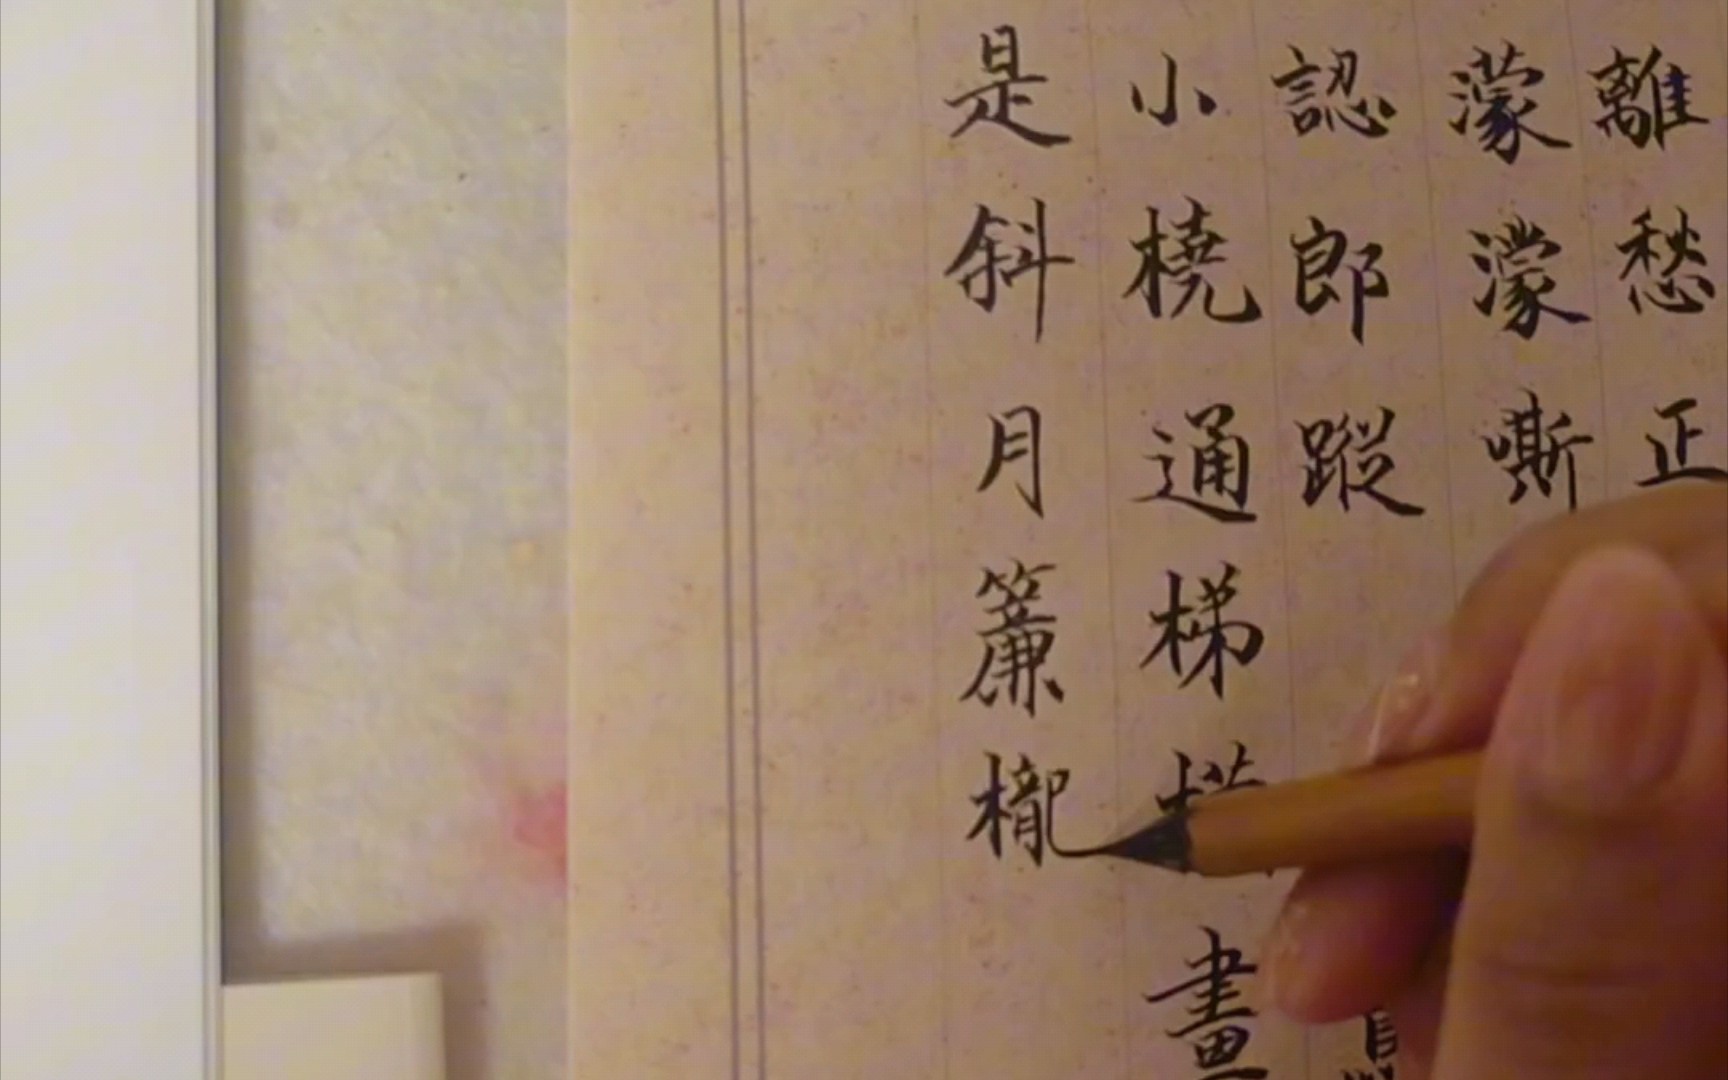 離愁正
濛濛嘶
認郎蹤
小橈通梯橫畫
是斜月簾櫳